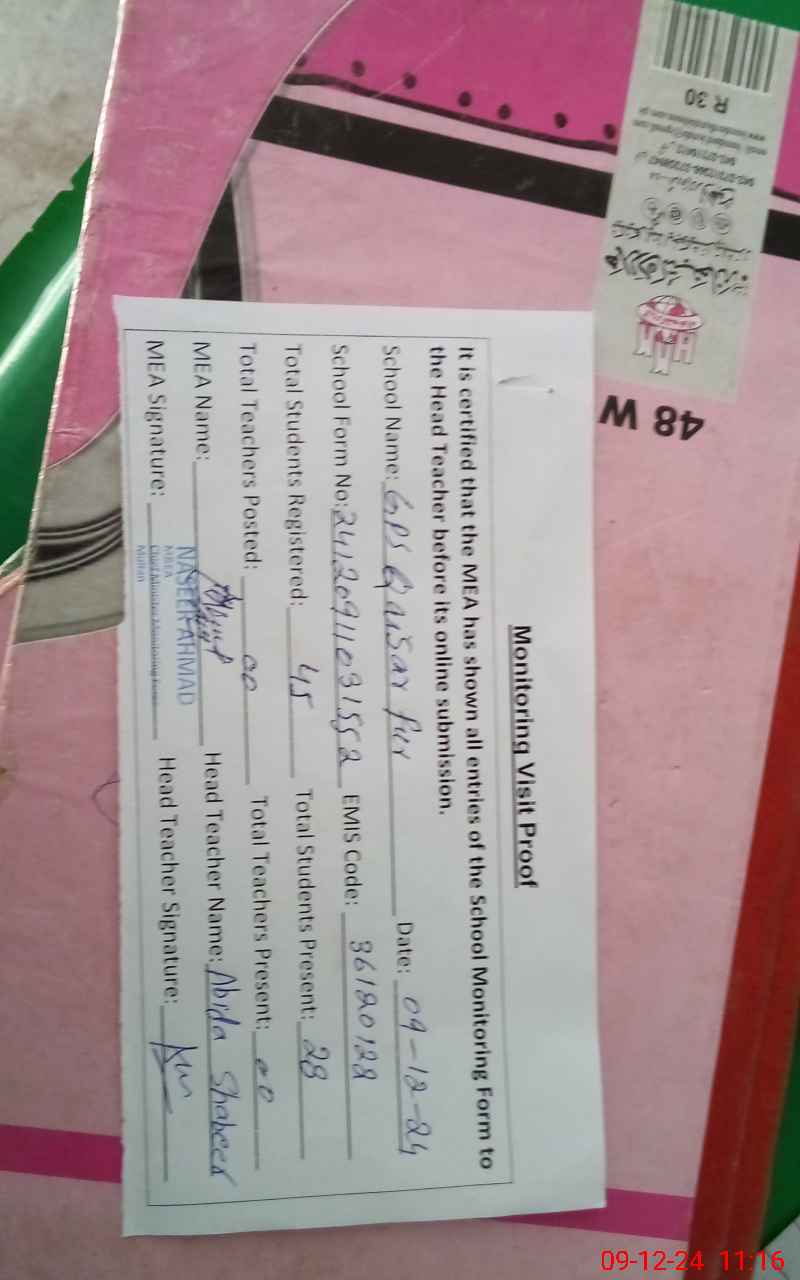 Monitoring Visit Proof
It is certified that the MEA has shown all entries of the School Monitoring Form to
the Head Teacher before its online submission.
School Name: GPS Qaisar Pur Date: 09-12-24
School Form No: 24120911031552 EMIS Code: 36120122
Total Students Registered: 45 Total Students Present: 28
Total Teachers Posted: 00 Total Teachers Present: 00
MEA Name: Head Teacher Name: Abida Shabeer
NASEER AHMAD
MEA Signature: Head Teacher Signature:
MBEA
Chief Minister Monitoring Force
Multan
48 W
R 30
09-12-24 11:16